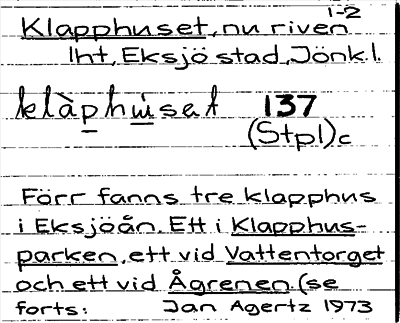 1-2
Klapphuset, nu riven
lht, Eksjö stad, Jönk.l.
klàphúsat 137
(Stpl)c
Förr fanns tre klapphus
i Eksjöån. Ett i Klapphus-
parken, ett vid Vattentorget
och ett vid Ågrenen. (se
forts: Jan Agertz 1973